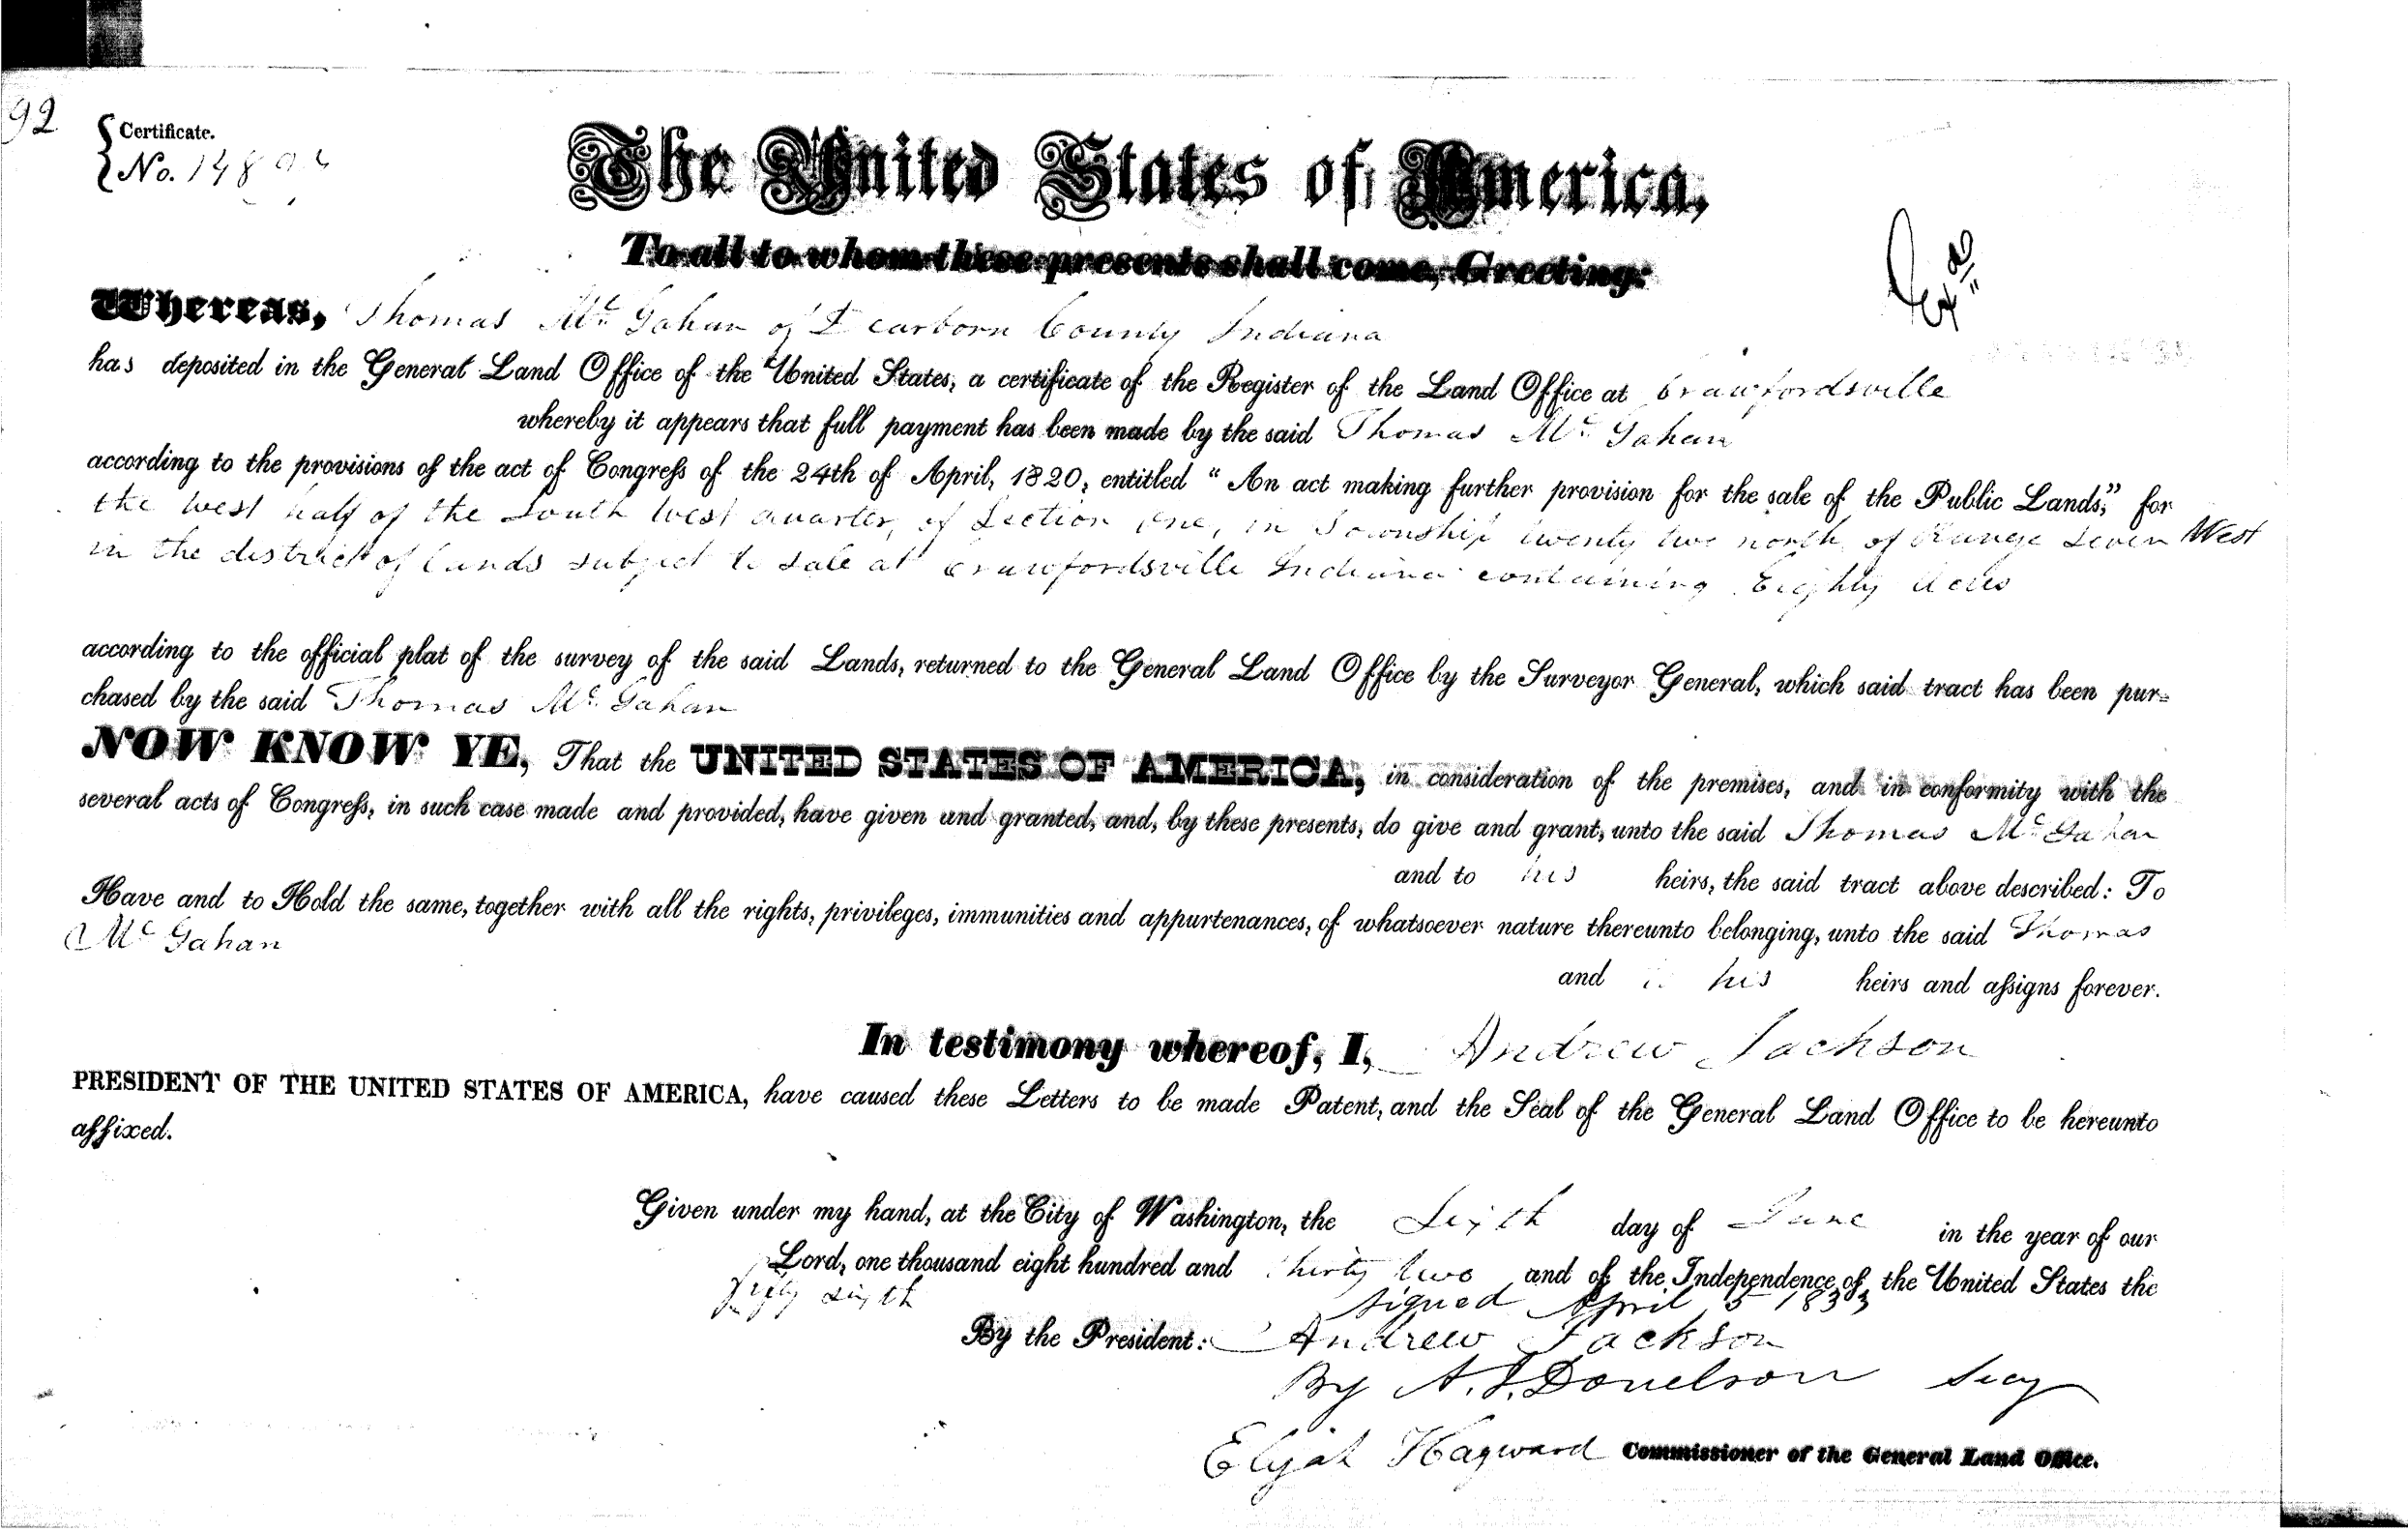 92
Certificate.
No. 148
The United States of America,
To all to whom these presents shall come, Greeting:
Whereas, Thomas Mc Gahan of Dearborn County Indiana
has deposited in the General Land Office of the United States, a certificate of the Register of the Land Office at Crawfordsville
whereby it appears that full payment has been made by the said Thomas Mc Gahan
according to the provisions of the act of Congress of the 24th of April, 1820, entitled "An act making further provision for the sale of the Public Lands," for
the West half of the South West quarter, of Section one, in Township twenty two north, of Range Seven West
in the district of lands subject to sale at Crawfordsville Indiana containing Eighty acres
according to the official plat of the survey of the said Lands, returned to the General Land Office by the Surveyor General, which said tract has been pur-
chased by the said Thomas Mc Gahan
NOW KNOW YE, That the UNITED STATES OF AMERICA, in consideration of the premises, and in conformity with the
several acts of Congress, in such case made and provided, have given and granted, and, by these presents, do give and grant, unto the said Thomas Mc Gahan
and to his heirs, the said tract above described: To
Have and to Hold the same, together with all the rights, privileges, immunities and appurtenances, of whatsoever nature thereunto belonging, unto the said Thomas
Mc Gahan
and to his heirs and assigns forever.
In testimony whereof, I, Andrew Jackson
PRESIDENT OF THE UNITED STATES OF AMERICA, have caused these Letters to be made Patent, and the Seal of the General Land Office to be hereunto
affixed.
Given under my hand, at the City of Washington, the Sixth day of June in the year of our
Lord, one thousand eight hundred and thirty two and of the Independence of the United States the
fifty sixth
signed April 5 1833
By the President: Andrew Jackson
By A. J. Donelson Secy
Elijah Hayward Commissioner of the General Land Office.